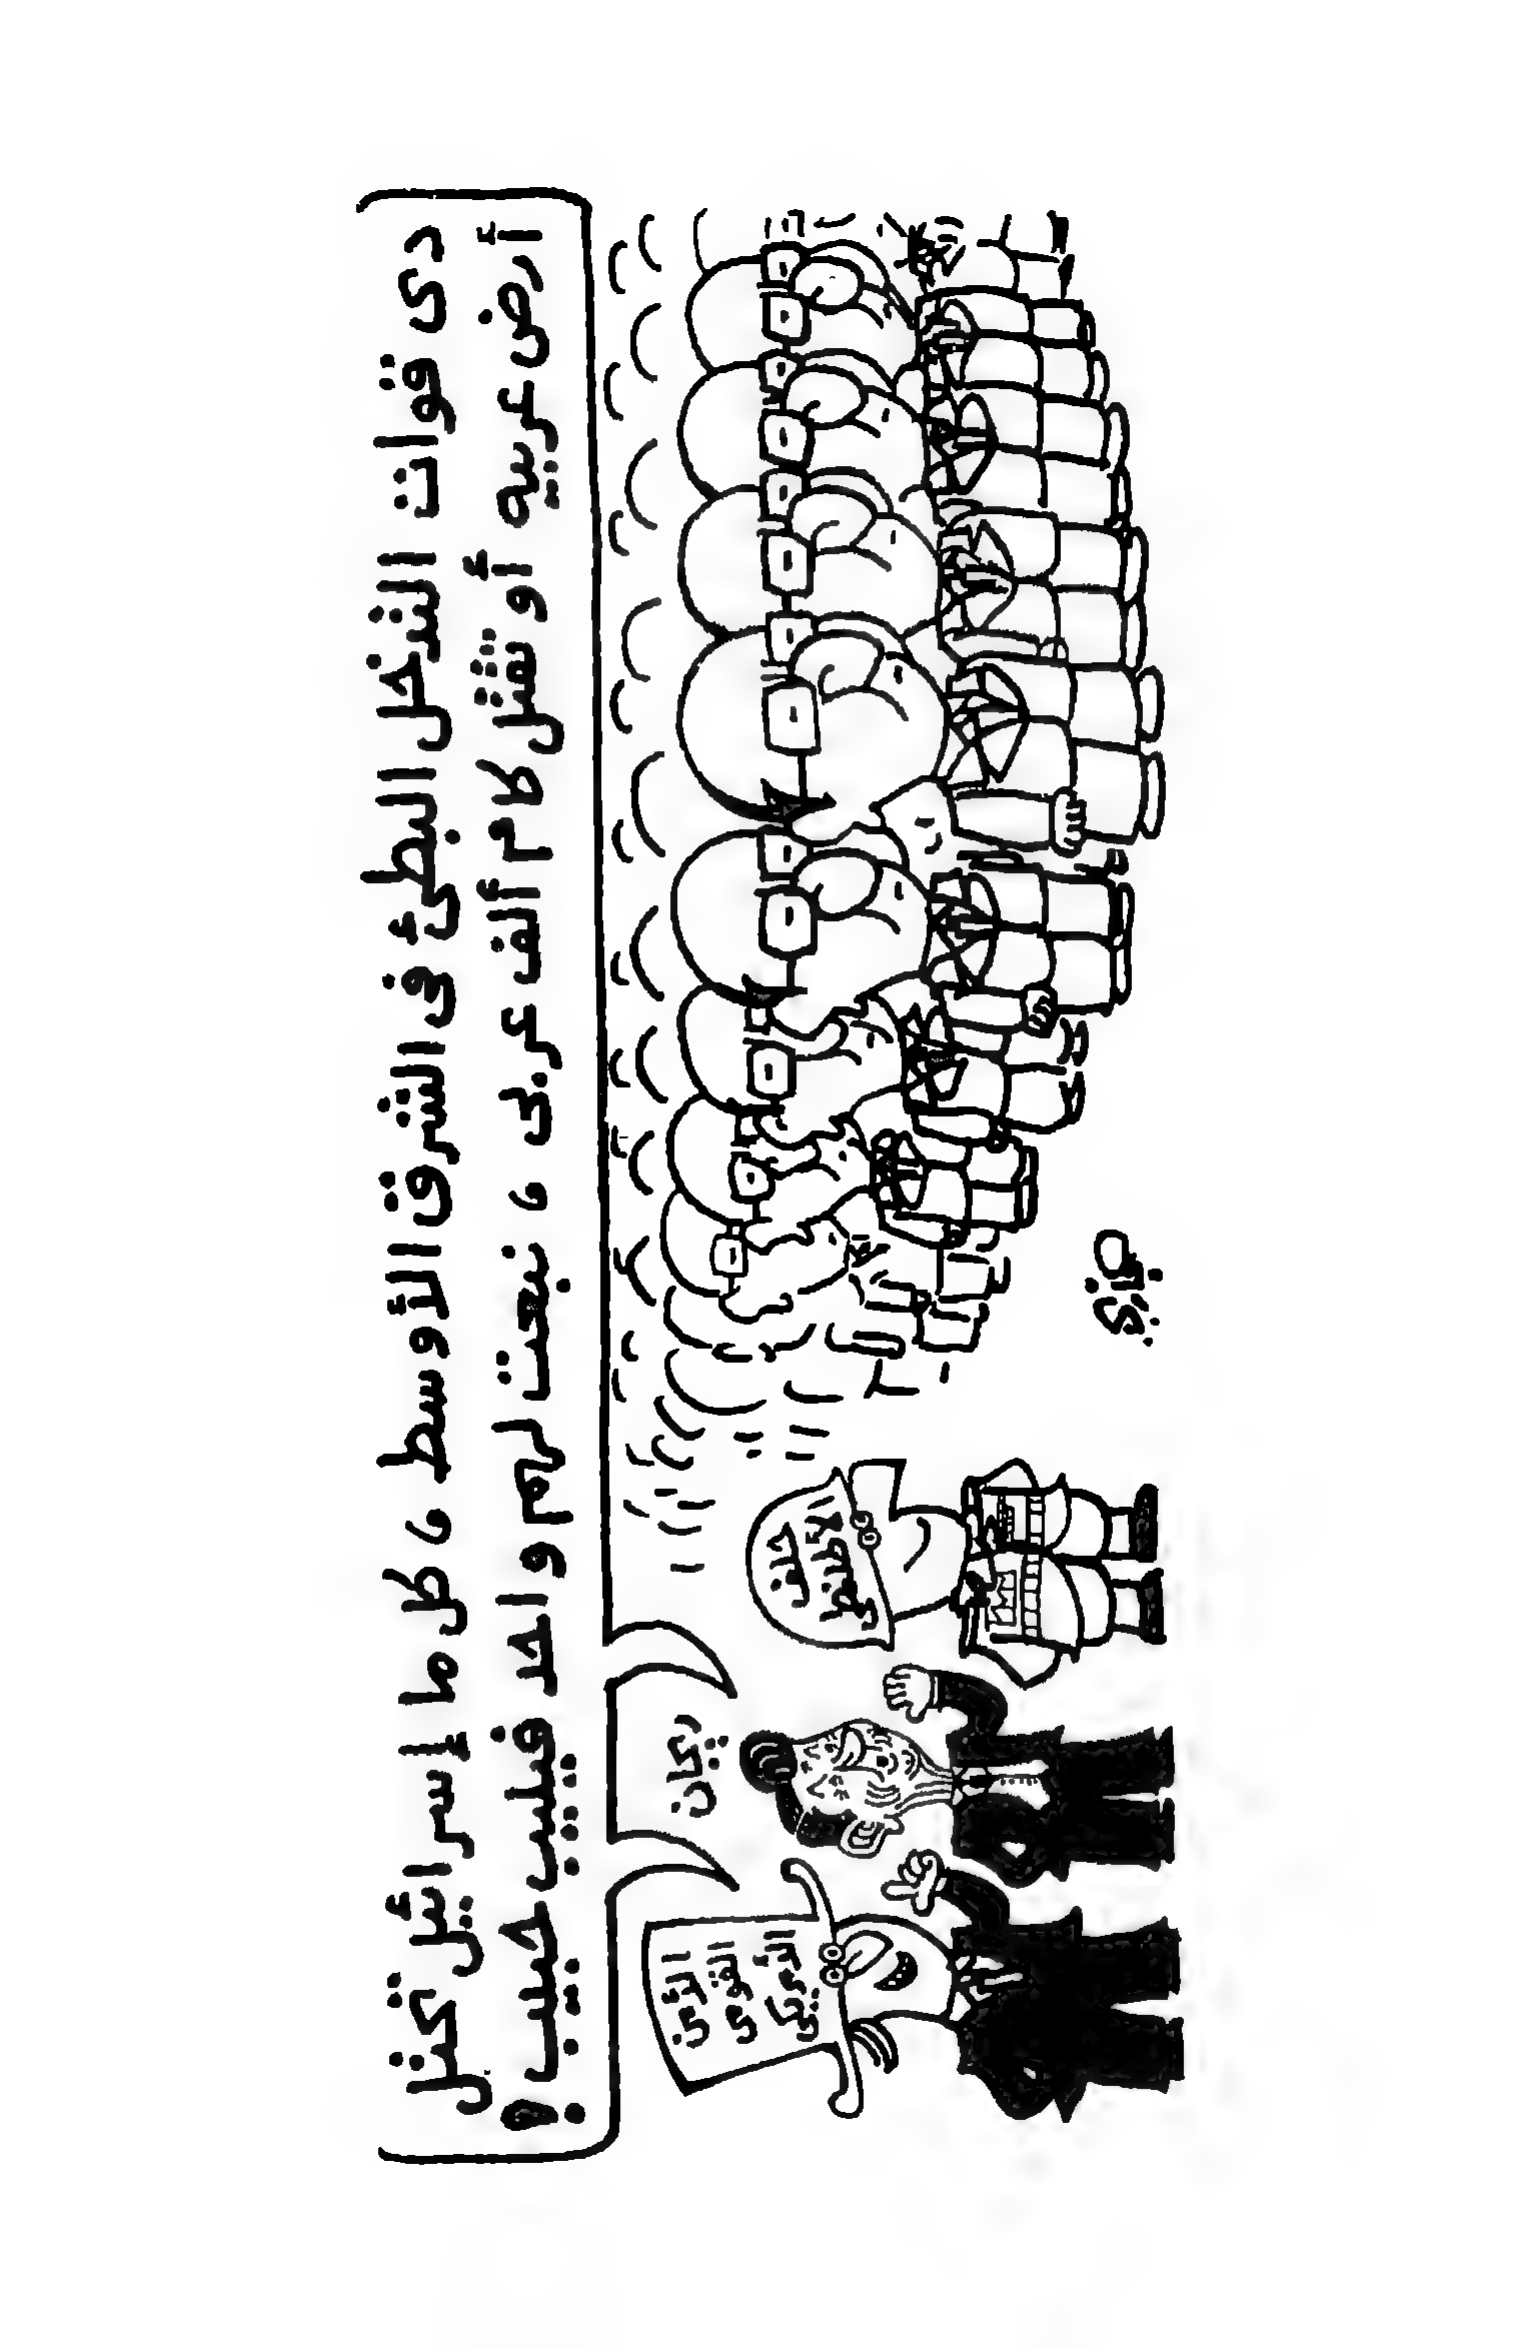 دى قوات التدخل البطئ فى الشرق الأوسط ، كل ما إسرائيل تحتل
أرض عربيه أو تقتل كام ألف عربى ، نبعت لهم واحد فيليب حبيب !
ريجان
الأمن
القومى
الأمريكى
حلف
الأطلنطى
حجازى